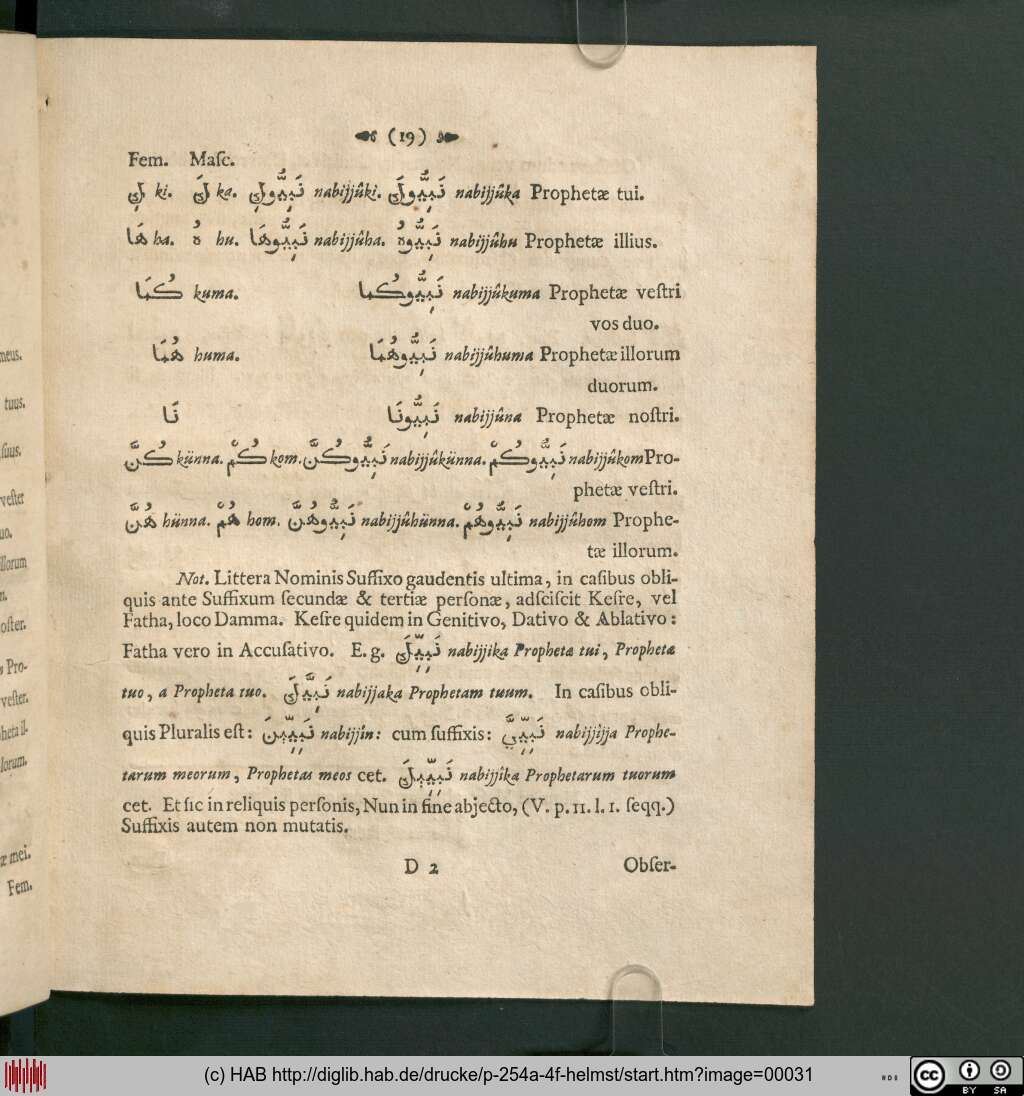 (19)
Fem. Maſc.
لِي ki. لَي ka. نَبِيُّولِي nabijjûki. نَبِيُّولَي nabijjûka Prophetæ tui.
هَا ha. هُ hu. نَبِيُّوهَا nabijjûha. نَبِيُّوهُ nabijjûhu Prophetæ illius.
كُمَا kuma. نَبِيُّوكُمَا nabijjûkuma Prophetæ veſtri
vos duo.
هُمَا huma. نَبِيُّوهُمَا nabijjûhuma Prophetæ illorum
duorum.
نَا نَبِيُّونَا nabijjûna Prophetæ noſtri.
كُنَّ künna. كُمْ kom. نَبِيُّوكُنَّ nabijjûkünna. نَبِيُّوكُمْ nabijjûkom Pro-
phetæ veſtri.
هُنَّ hünna. هُمْ hom. نَبِيُّوهُنَّ nabijjûhünna. نَبِيُّوهُمْ nabijjûhom Prophe-
tæ illorum.
Not. Littera Nominis Suffixo gaudentis ultima, in caſibus obli-
quis ante Suffixum ſecundæ & tertiæ perſonæ, adſciſcit Keſre, vel
Fatha, loco Damma. Keſre quidem in Genitivo, Dativo & Ablativo:
Fatha vero in Accuſativo. E. g. نَبِيِّلَي nabijjika Prophetæ tui, Prophetæ
tuo, a Propheta tuo. نَبِيَّلَي nabijjaka Prophetam tuum. In caſibus obli-
quis Pluralis eſt: نَبِيِّينَ nabijjîn: cum ſuffixis: نَبِيِّيَّ nabijjîjja Prophe-
tarum meorum, Prophetas meos cet. نَبِيِّيلَي nabijjîka Prophetarum tuorum
cet. Et ſic in reliquis perſonis, Nun in fine abjecto, (V. p. 11. l. 1. ſeqq.)
Suffixis autem non mutatis.
D 2 Obſer-
meus.
tuus.
ſuus.
veſter
uo.
illorum
oſter.
Pro-
veſter.
lorum.
æ mei.
Fem.
(c) HAB http://diglib.hab.de/drucke/p-254a-4f-helmst/start.htm?image=00031
HAB
cc BY SA